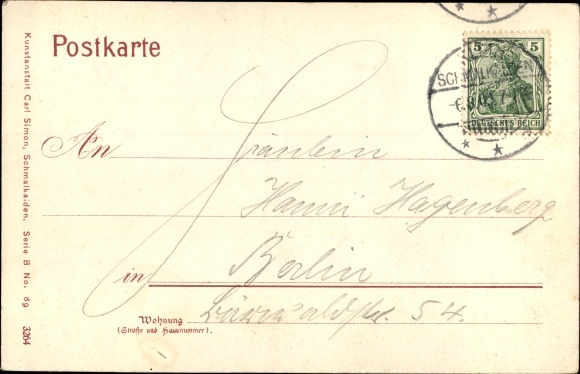 Postkarte
5 5
DEUTSCHES REICH
An Fräulein
Hanni Hagenberg
in Berlin
Wohnung
(Straße und Hausnummer).
Bärwaldstr. 54.
Kunstanstalt Carl Simon, Schmalkalden. Serie B No. 89
3264